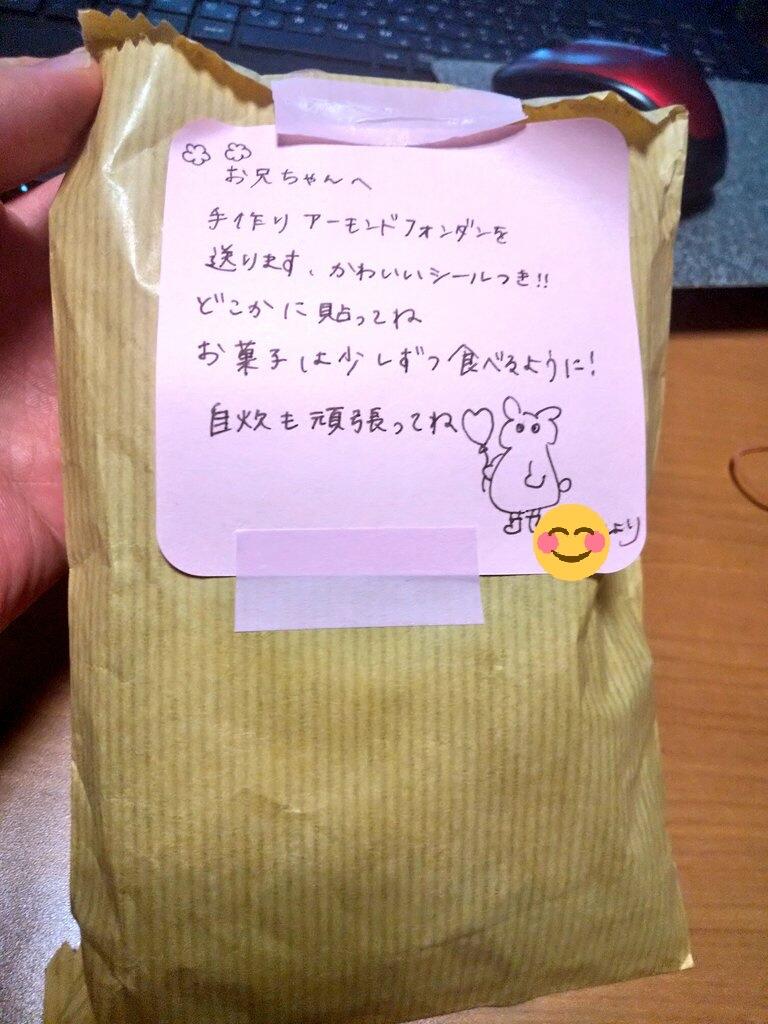 お兄ちゃんへ
手作りアーモンドフォンダンを
送ります、かわいいシールつき!!
どこかに貼ってね
お菓子は少しずつ食べるように!
自炊も頑張ってね
より